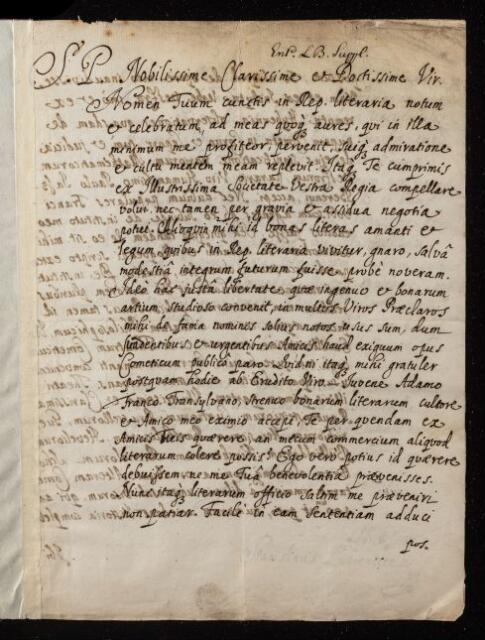 Ent. L.B. Suppl.
S. P. Nobilissime Clarissime et Doctissime Vir.
Nomen Tuum cunctis in Rep. literaria notum
& celebratum, ad meas quoq; aures, qui in illa
minimum me profiteor, pervenit, suiq; admiratione
et cultu mentem meam replevit. Itaq; Te cumprimis
ex Illustrissima Societate Vestra Regia compellare
volui, nec tamen per gravia & assidua negotia
potui. Alioquin mihi id bonas literas amanti et
legum, quibus in Rep. literaria vivitur, gnaro, salvâ
modestiâ integrum futurum fuisse probè noveram.
Ideo hac justâ libertate, quæ ingenuo et bonarum
artium studioso convenit, in multos Viros Præclaros
mihi de fama nomines solius notos usus sum, dum
suadentibus & urgentibus Amicis haud exiguum opus
Cometicum publico paro. Quidni itaq; mihi gratuler
postquam hodie ab Erudito Viro Juvene Adamo
Franco Transylvano, strenuo bonarum literarum cultore
et Amico meo eximio accepi, Te per quendam ex
Amicis Tuis quærere, an mecum commercium aliquod
literarum colere possis? Ego vero potius id quærere
debuissem, ne me Tuâ benevolentiâ prævenisses.
Nunc itaq; literarum officio saltim me præveniri
non patiar. Facilè in eam sententiam adduci
pos.